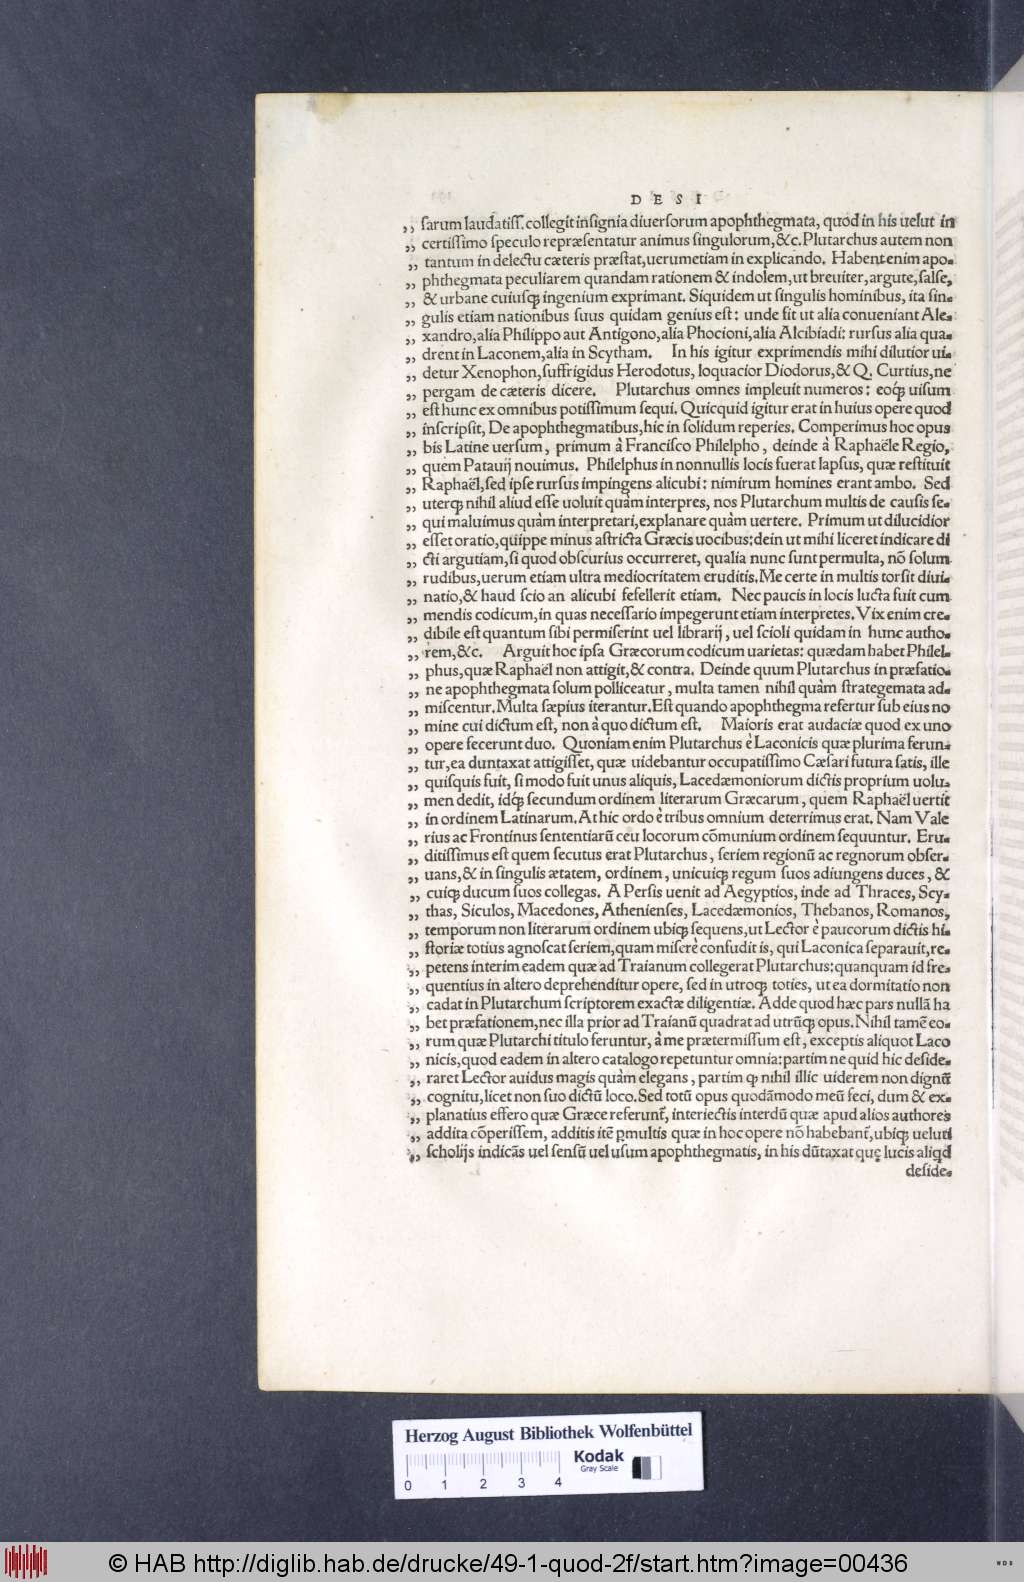 D E S I
„ sarum laudatiss. collegit insignia diuersorum apophthegmata, quod in his uelut in
„ certissimo speculo repræsentatur animus singulorum, &c. Plutarchus autem non
„ tantum in delectu cæteris præstat, uerumetiam in explicando. Habent enim apo-
„ phthegmata peculiarem quandam rationem & indolem, ut breuiter, argute, salse,
„ & urbane cuiusqꝫ ingenium exprimant. Siquidem ut singulis hominibus, ita sin-
„ gulis etiam nationibus suus quidam genius est: unde fit ut alia conueniant Ale-
„ xandro, alia Philippo aut Antigono, alia Phocioni, alia Alcibiadi: rursus alia qua-
„ drent in Laconem, alia in Scytham. In his igitur exprimendis mihi dilutior ui-
„ detur Xenophon, suffrigidus Herodotus, loquacior Diodorus, & Q. Curtius, ne
„ pergam de cæteris dicere. Plutarchus omnes impleuit numeros: eoqꝫ uisum
„ est hunc ex omnibus potissimum sequi. Quicquid igitur erat in huius opere quod
„ inscripsit, De apophthegmatibus, hic in solidum reperies. Comperimus hoc opus
„ bis Latine uersum, primum à Francisco Philelpho, deinde à Raphaële Regio,
„ quem Patauij nouimus. Philelphus in nonnullis locis fuerat lapsus, quæ restituit
„ Raphaël, sed ipse rursus impingens alicubi: nimirum homines erant ambo. Sed
„ uterqꝫ nihil aliud esse uoluit quàm interpres, nos Plutarchum multis de causis se-
„ qui maluimus quàm interpretari, explanare quàm uertere. Primum ut dilucidior
„ esset oratio, quippe minus astricta Græcis uocibus: dein ut mihi liceret indicare di
„ cti argutiam, si quod obscurius occurreret, qualia nunc sunt permulta, nō solum
„ rudibus, uerum etiam ultra mediocritatem eruditis. Me certe in multis torsit diui-
„ natio, & haud scio an alicubi fefellerit etiam. Nec paucis in locis lucta fuit cum
„ mendis codicum, in quas necessario impegerunt etiam interpretes. Vix enim cre-
„ dibile est quantum sibi permiserint uel librarij, uel scioli quidam in hunc autho-
„ rem, &c. Arguit hoc ipsa Græcorum codicum uarietas: quædam habet Philel-
„ phus, quæ Raphaël non attigit, & contra. Deinde quum Plutarchus in præfatio-
„ ne apophthegmata solum polliceatur, multa tamen nihil quàm strategemata ad-
„ miscentur. Multa sæpius iterantur. Est quando apophthegma refertur sub eius no
„ mine cui dictum est, non à quo dictum est. Maioris erat audaciæ quod ex uno
„ opere fecerunt duo. Quoniam enim Plutarchus è Laconicis quæ plurima ferun-
„ tur, ea duntaxat attigisset, quæ uidebantur occupatissimo Cæsari futura satis, ille
„ quisquis fuit, si modo fuit unus aliquis, Lacedæmoniorum dictis proprium uolu-
„ men dedit, idqꝫ secundum ordinem literarum Græcarum, quem Raphaël uertit
„ in ordinem Latinarum. At hic ordo è tribus omnium deterrimus erat. Nam Vale
„ rius ac Frontinus sententiarū ceu locorum cōmunium ordinem sequuntur. Eru-
„ ditissimus est quem secutus erat Plutarchus, seriem regionū ac regnorum obser-
„ uans, & in singulis ætatem, ordinem, unicuiqꝫ regum suos adiungens duces, &
„ cuiqꝫ ducum suos collegas. A Persis uenit ad Aegyptios, inde ad Thraces, Scy-
„ thas, Siculos, Macedones, Athenienses, Lacedæmonios, Thebanos, Romanos,
„ temporum non literarum ordinem ubiqꝫ sequens, ut Lector è paucorum dictis hi-
„ storiæ totius agnoscat seriem, quam miserè confudit is, qui Laconica separauit, re-
„ petens interim eadem quæ ad Traianum collegerat Plutarchus: quanquam id fre-
„ quentius in altero deprehenditur opere, sed in utroqꝫ toties, ut ea dormitatio non
„ cadat in Plutarchum scriptorem exactæ diligentiæ. Adde quod hæc pars nullā ha
„ bet præfationem, nec illa prior ad Traianū quadrat ad utrūqꝫ opus. Nihil tamē eo-
„ rum quæ Plutarchi titulo feruntur, à me prætermissum est, exceptis aliquot Laco
„ nicis, quod eadem in altero catalogo repetuntur omnia: partim ne quid hic deside-
„ raret Lector auidus magis quàm elegans, partim ꝙ nihil illic uiderem non dignū
„ cognitu, licet non suo dictū loco. Sed totū opus quodāmodo meū feci, dum & ex-
„ planatius effero quæ Græce referunt̄, interiectis interdū quæ apud alios authores
„ addita cōperissem, additis itē ꝑmultis quæ in hoc opere nō habebant̄, ubiqꝫ ueluti
„ scholijs indicās uel sensū uel usum apophthegmatis, in his dūtaxat quę lucis aliqd
deside-
Herzog August Bibliothek Wolfenbüttel
Kodak
Gray Scale
0 1 2 3 4
© HAB http://diglib.hab.de/drucke/49-1-quod-2f/start.htm?image=00436